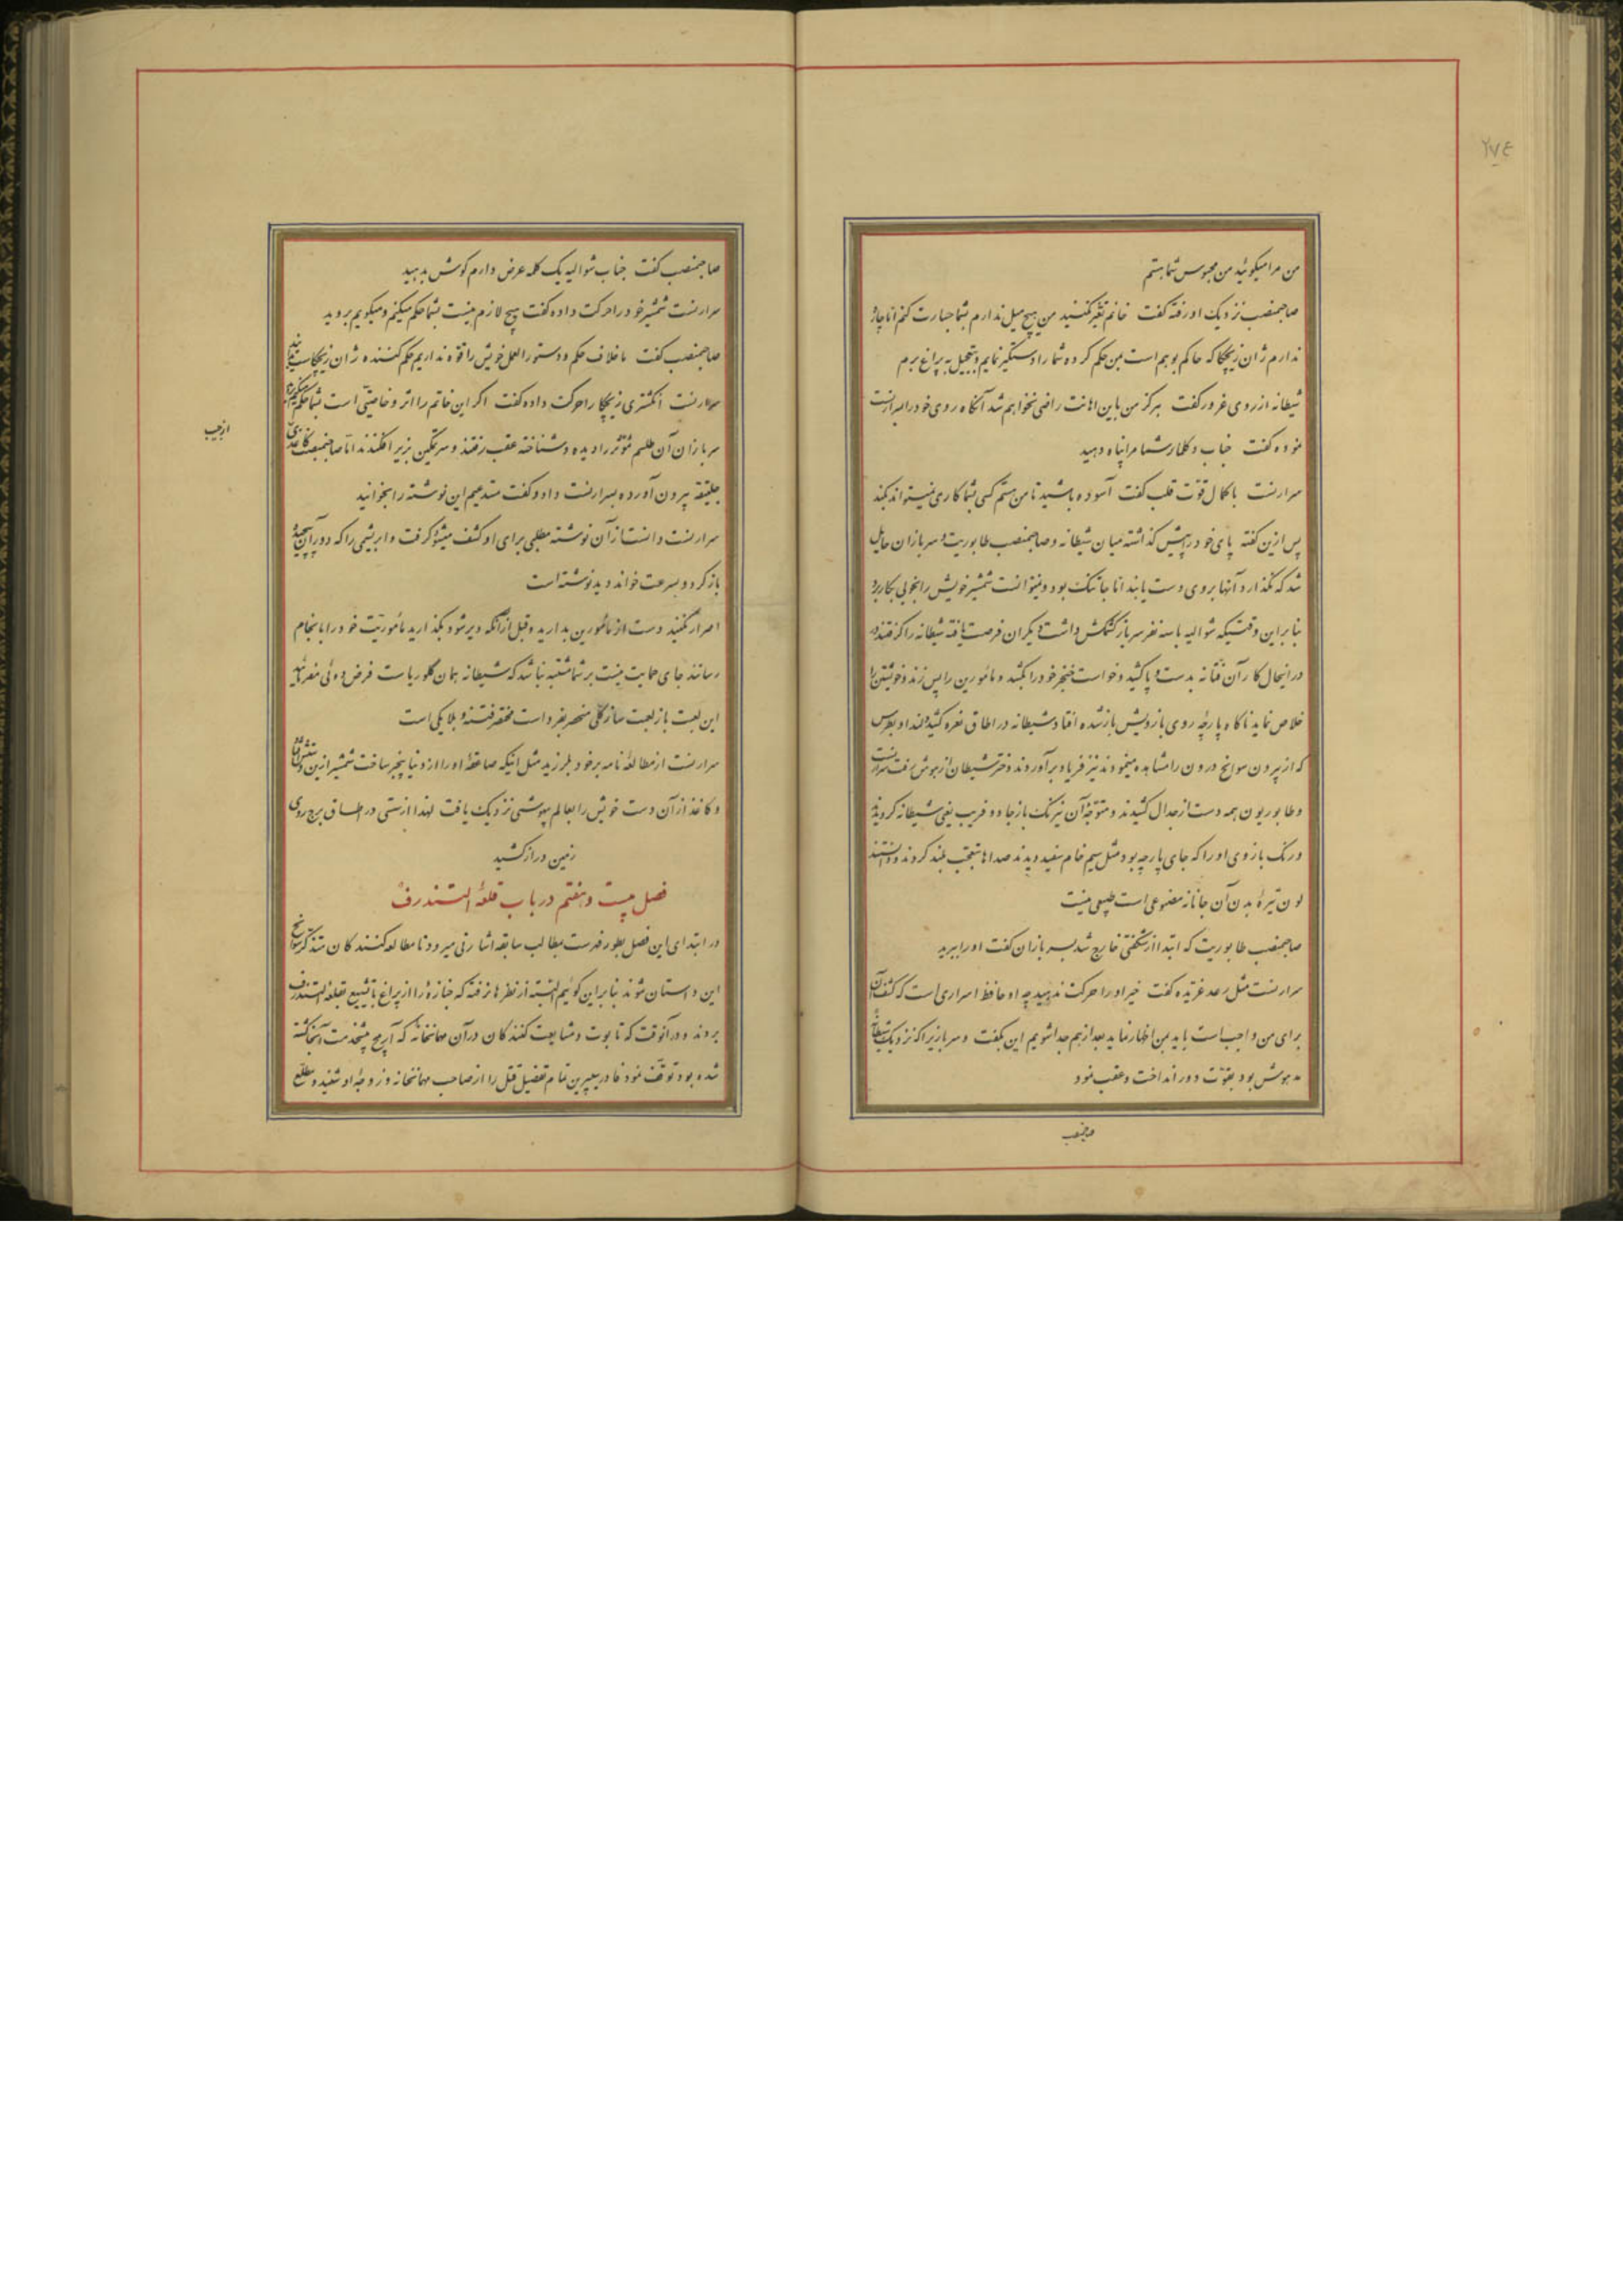 ۲۷٤
من مرا میگوئید من محبوس شما هستم
صاحبمنصب نزدیک او رفته گفت خانم تغیّر نکنید من هیچ میل ندارم بشما جسارت کنم اما چاره
ندارم ژان زیچکا که حاکم بوهم است بمن حکم کرده شما را دستگیر نمایم و بتعجیل به پراغ برم
شیطانه از روی غرور گفت هرگز من باین اهانت راضی نخواهم شد آنگاه روی خود را بسرارنست
نموده گفت جناب دکلمار شما مرا پناه دهید
سرارنست با کمال قوّت قلب گفت آسوده باشید تا من هستم کسی بشما کاری نمیتواند بکند
پس ازین گفته پای خود را پیش گذاشته میان شیطانه و صاحبمنصب طابوریت و سربازان حایل
شد که نگذارد آنها بروی دست یابند اما جا تنک بود و نمیتوانست شمشیر خویش را بخوبی بکار برد
بنا براین وقتیکه شوالیه با سه نفر سرباز کشمکش داشت دیگران فرصت یافته شیطانه را گرفتند و
درینحال کار آن فتانه بدست و پا کشید و خواست خنجر خود را بکشد و مأمورین را پس زند و خویشتن را
خلاص نماید ناگاه پارچهٔ روی بازویش باز شده افتاد شیطانه در اطاق نعره کشید لندا و بطرس
که از بیرون سوانح درون را مشاهده مینمودند نیز فریاد برآوردند و دختر شیطان از هوش رفت سرارنست
و طابوریون همه دست از جدال کشیدند و متوجّه آن نیرنک باز جادو فریب یعنی شیطانه گردیدند
و رنک بازوی او را که جای پارچه بود مثل سیم خام سفید دیدند صداها بتعجّب بلند کردند و دانستند
لون تیرهٔ بدن آن جانانه مصنوعی است طبیعی نیست
صاحبمنصب طابوریت که ابتدا از شگفتی خارج شد بسربازان گفت او را ببرید
سرارنست مثل رعد غریده گفت خیر او را حرکت ندهید چه او حافظ اسراری است که کشف آن
برای من واجب است باید بمن اظهار نماید بعد از هم جدا شویم این بگفت و سربازیرا که نزدیک شیطانهٔ
مدهوش بود بقوّت دور انداخت و عقب نمود
صاحبمنصب
صاحبمنصب گفت جناب شوالیه یک کلمه عرض دارم گوش بدهید
سرارنست شمشیر خود را حرکت داده گفت هیچ لازم نیست بشما حکم میکنم و میگویم بروید
صاحبمنصب گفت ما خلاف حکم و دستورالعمل خویش را قوّه نداریم حکم کننده ژان زیچکاست
سرارنست انگشتری زیچکا را حرکت داده گفت اگر این خاتم را اثر و خاصیّتی است بشما حکم میکنم
سربازان آن طلسم مؤثر را دیده و شناخته عقب رفتند و سر تمکین بزیر افکندند امّا صاحبمنصب کاغذی
از جیب
جلیتقه بیرون آورده بسرارنست داد و گفت مستدعیم این نوشته را بخوانید
سرارنست دانست از آن نوشته مطلبی برای او کشف میشود گرفت و ابریشمی را که دور آن پیچیده
باز کرد و بسرعت خواند دید نوشته است
اصرار نکنید دست از مأمورین بدارید و قبل از آنکه دیر شود بگذارید مأموریّت خود را بانجام
رسانند جای حمایت نیست بر شما مشتبه نباشد که شیطانه همان گلوریاست فرض دوئی مفرمائید
این لعبت باز لعبت ساز کلی منحصر بفرد است مختصر فتنه و بلا یکی است
سرارنست از مطالعهٔ نامه بر خود بلرزید مثل اینکه صاعقهٔ او را از دنیا بیخبر ساخت شمشیر ازین دستش افتاد
و کاغذ از آن دست خویش را بعالم بیهوشی نزدیک یافت لهذا از سستی در اطاق برج روی
زمین دراز کشید
فصل بیست و هفتم در باب قلعهٔ التندرف
در ابتدای این فصل بطور فهرست بمطالب سابقه اشارتی میرود تا مطالعه کنندگان متذکر سوانح
این داستان شوند بنا براین گوئیم البته از نظرها نرفته که جنازهٔ را از پراغ با تشییع بقلعهٔ التندرف
بردند و در آنوقت که تابوت و مشایعت کنندگان در آن مهمانخانه که آریخ پیشخدمت آنجا کشته
شده بود توقّف نمود فادر سیپرین تمام تفصیل قتل را از صاحب مهمانخانه و زوجهٔ او شنید و مطلع